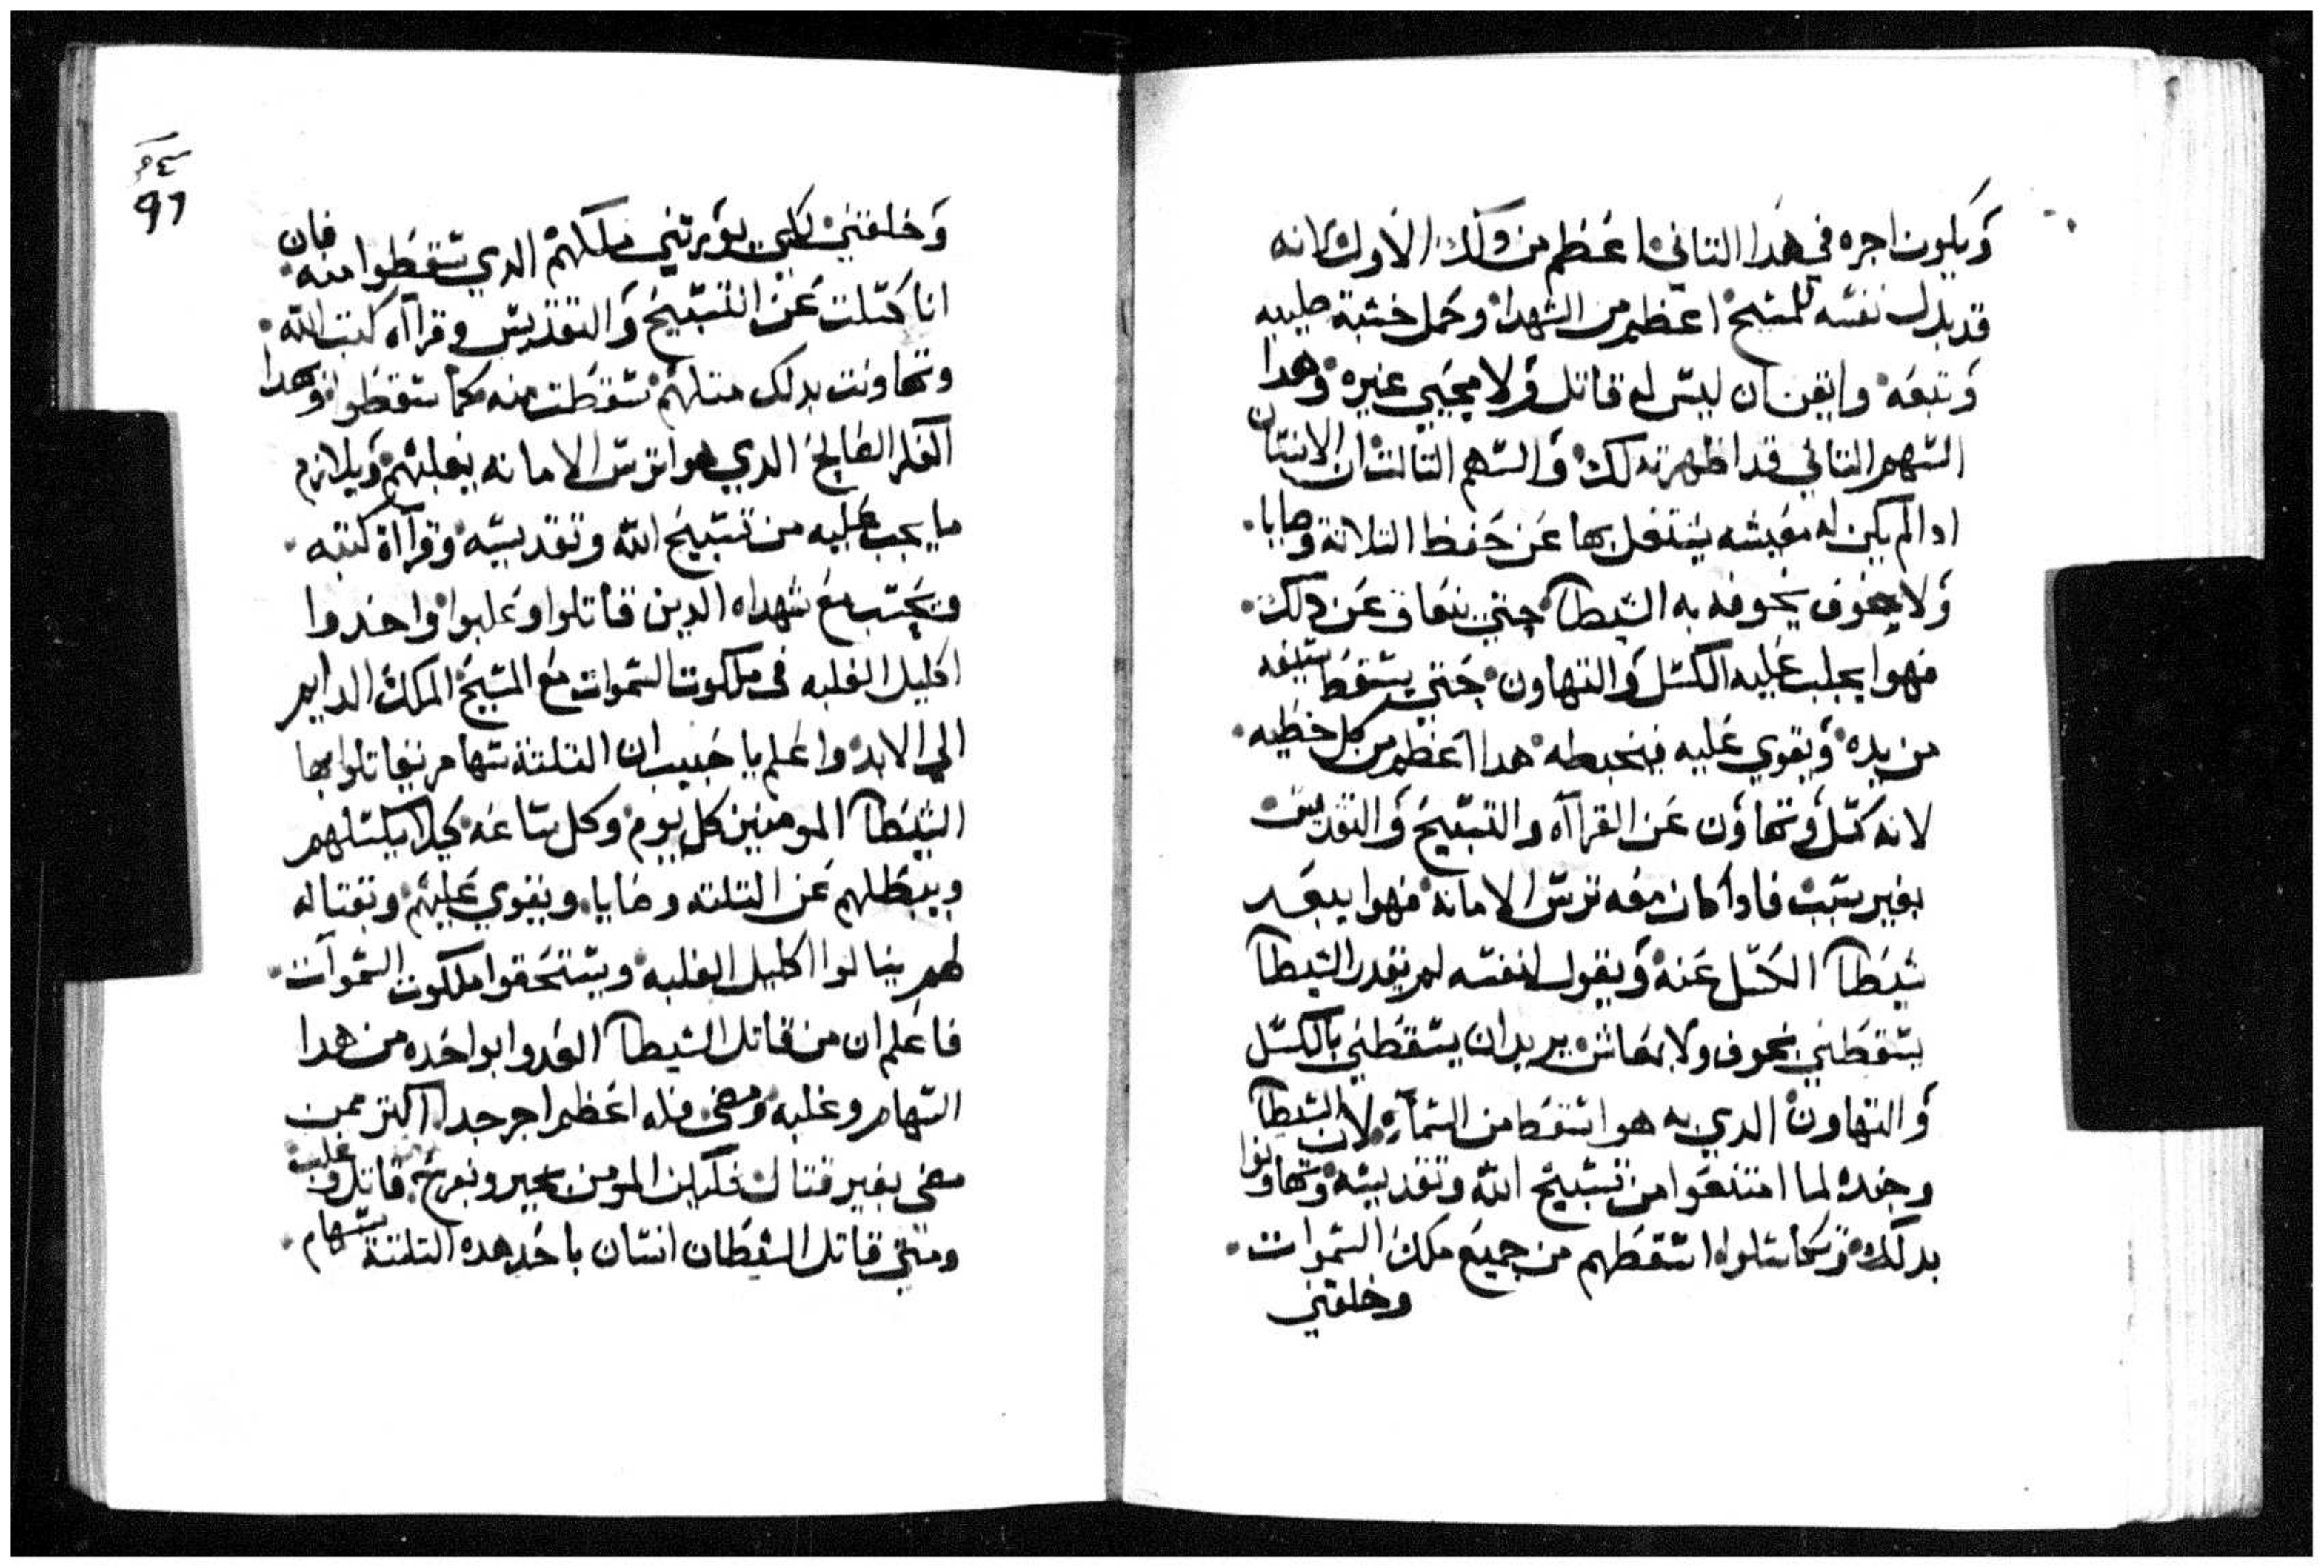 ويكون اجره في هدا التاني اعظم من دلك الاول لانه
قد بدل نفسه للمسيح اعظم من الشهدا وحمل خشبة صليبه
وتبعه وايقن ان ليس له قاتل ولا محيي غيره وهدا
السهم التاني قد اظهرته لك والسهم التالت ان الانسان
ادا لم يكن له معيشه يشتغل بها عن حفظ التلاتة وصايا
ولا خوف يخوفه به الشيطا حتي يتعاق عن دلك
فهوا يجلب عليه الكسل والتهاون حتي يسقط سيفه
من يده ويقوي عليه فيحبطه هدا اعظم من كل خطيه
لانه كسل وتهاون عن القرااه والتسبيح والتقديس
بغير سبب فادا كان معه ترس الامانه فهوا يبعد
شيطا الكسل عنه ويقول لنفسه لم يقدر الشيطا
يسقطني بخوف ولا بمعاش يريد ان يسقطني بالكسل
والتهاون الدي به هوا سقط من السما لان الشيطا
وجنده لما امتنعوا من تسبيح الله وتقديسه وتهاونوا
بدلك وتكاسلوا اسقطهم من جميع ملك السموات
وخلقني
٩٤
٩٦
وخلقني لكي يورتني ملكهم الدي سقطوا منه فان
انا كسلت عن التسبيح والتقديس وقرااه كتب الله
وتهاونت بدلك متلهم سقطت منه كما سقطوا وبهدا
الفكر الصالح الدي هوا ترس الامانه يغلبهم ويلازم
ما يجب عليه من تسبيح الله وتقديسه وقرااة كتبه
ويحسب مع شهداه الدين قاتلوا وغلبوا واخدوا
اكليل الغلبه في ملكوت السموات مع المسيح الملك الدايم
الي الابد واعلم يا حبيب ان التلتة سهام يقاتلوا بها
الشيطا المومنين كل يوم وكل ساعه كيلا يكسلهم
ويبطلهم عن التلته وصايا ويقوي عليهم وبقتاله
لهم ينالوا اكليل الغلبه ويستحقوا ملكوت السموات
فاعلم ان من قاتل الشيطا العدوا بواحده من هدا
السهام وغلبه ومضي فله اعظم اجر جدا اكتر ممن
مضي بغير قتال فليكن المومن بخير وبفرح قاتل وغلب
ومتي قاتل الشيطان انسان باحد هده التلتة سهام